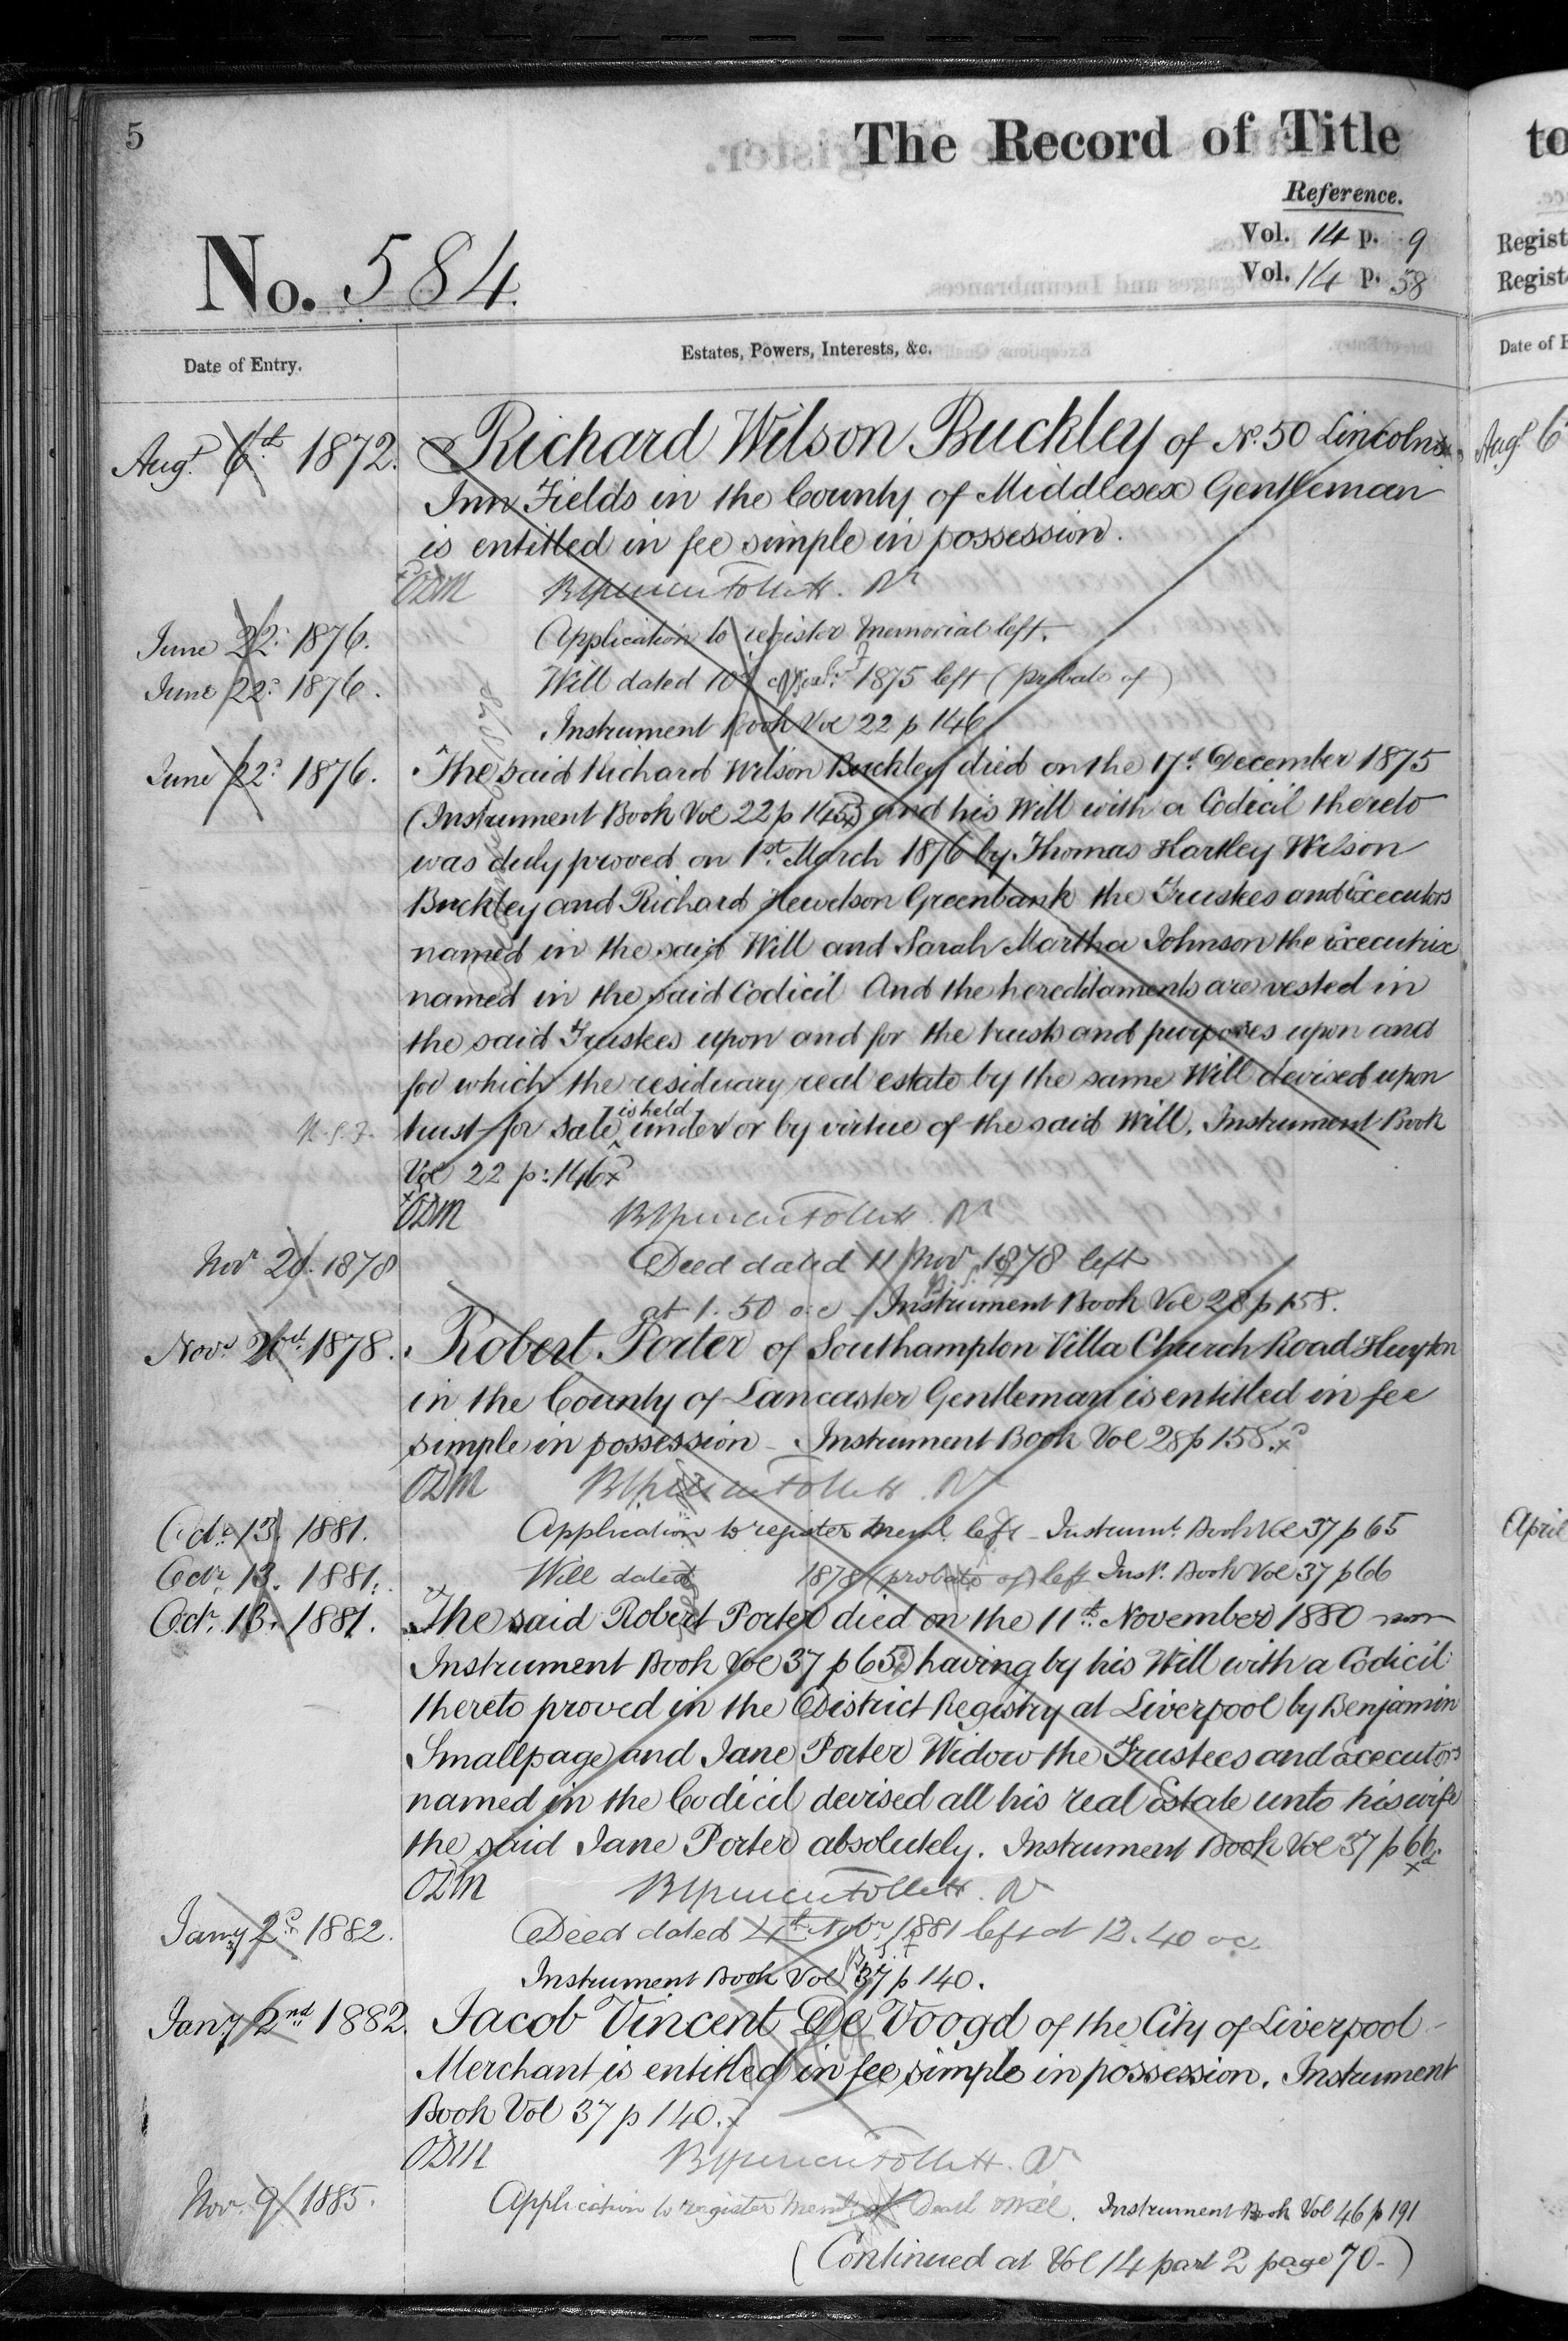 5
The Record of Title
to
Reference.
Vol. 14 p. 9
Vol. 14 p. 58
Regist
Regist
No. 584.
Date of Entry.
Estates, Powers, Interests, &c.
Date of E
Augt. 6th 1872. Richard Wilson Buckley of No. 50 Lincolns
Augt 6
Inn Fields in the County of Middlesex Gentleman
is entitled in fee simple in possession.
ODM Follett. Rr
June 22d 1876. Application to register Memorial left.
June 22d 1876. Will dated 10 1875 left (probate of)
Instrument Book Vol 22 p 146
June 22d 1876. The said Richard Wilson Buckley died on the 17th December 1875
(Instrument Book Vol 22 p 145) and his Will with a Codicil thereto
was duly proved on 1st March 1876 by Thomas Hartley Wilson
Buckley and Richard Hewetson Greenbank the Trustees and Executors
named in the said Will and Sarah Martha Johnson the Executrix
named in the said Codicil And the hereditaments are vested in
the said Trustees upon and for the trusts and purposes upon and
for which the residuary real estate by the same Will devised upon
trust for sale is held under or by virtue of the said Will. Instrument Book
Vol 22 p: 146
ODM Follett. Rr
Novr 20. 1878 Deed dated 11 Novr 1878 left
at 1.50 o.c - Instrument Book Vol 28 p 158.
Novr. 20th 1878. Robert Porter of Southampton Villa Church Road Huyton
in the County of Lancaster Gentleman is entitled in fee
simple in possession - Instrument Book Vol 28 p 158.
ODM Follett. Rr
Octr. 13. 1881. Application to register Meml. left - Instrumt. Book Vol 37 p 65
April
Octr. 13. 1881. Will dated 1878 (probate of) left Inst. Book Vol 37 p 66
Octr. 13. 1881. The said Robert Porter died on the 11th November 1880
Instrument Book Vol 37 p 65) having by his Will with a Codicil
thereto proved in the District Registry at Liverpool by Benjamin
Smallpage and Jane Porter Widow the Trustees and Executors
named in the Codicil devised all his real Estate unto his wife
the said Jane Porter absolutely. Instrument Book Vol 37 p 66.
ODM Follett. Rr
Jany 2d 1882. Deed dated 4th Novr. 1881 left at 12.40 oc
Instrument Book Vol 37 p 140.
Jany 2nd 1882. Jacob Vincent De Voogd of the City of Liverpool -
Merchant is entitled in fee simple in possession. Instrument
Book Vol 37 p 140.
ODM Follett. Rr
Nov. 9 1885. Application to register Meml. of Death & Will. Instrument Book Vol 46 p 191
(Continued at Vol 14 part 2 page 70.)